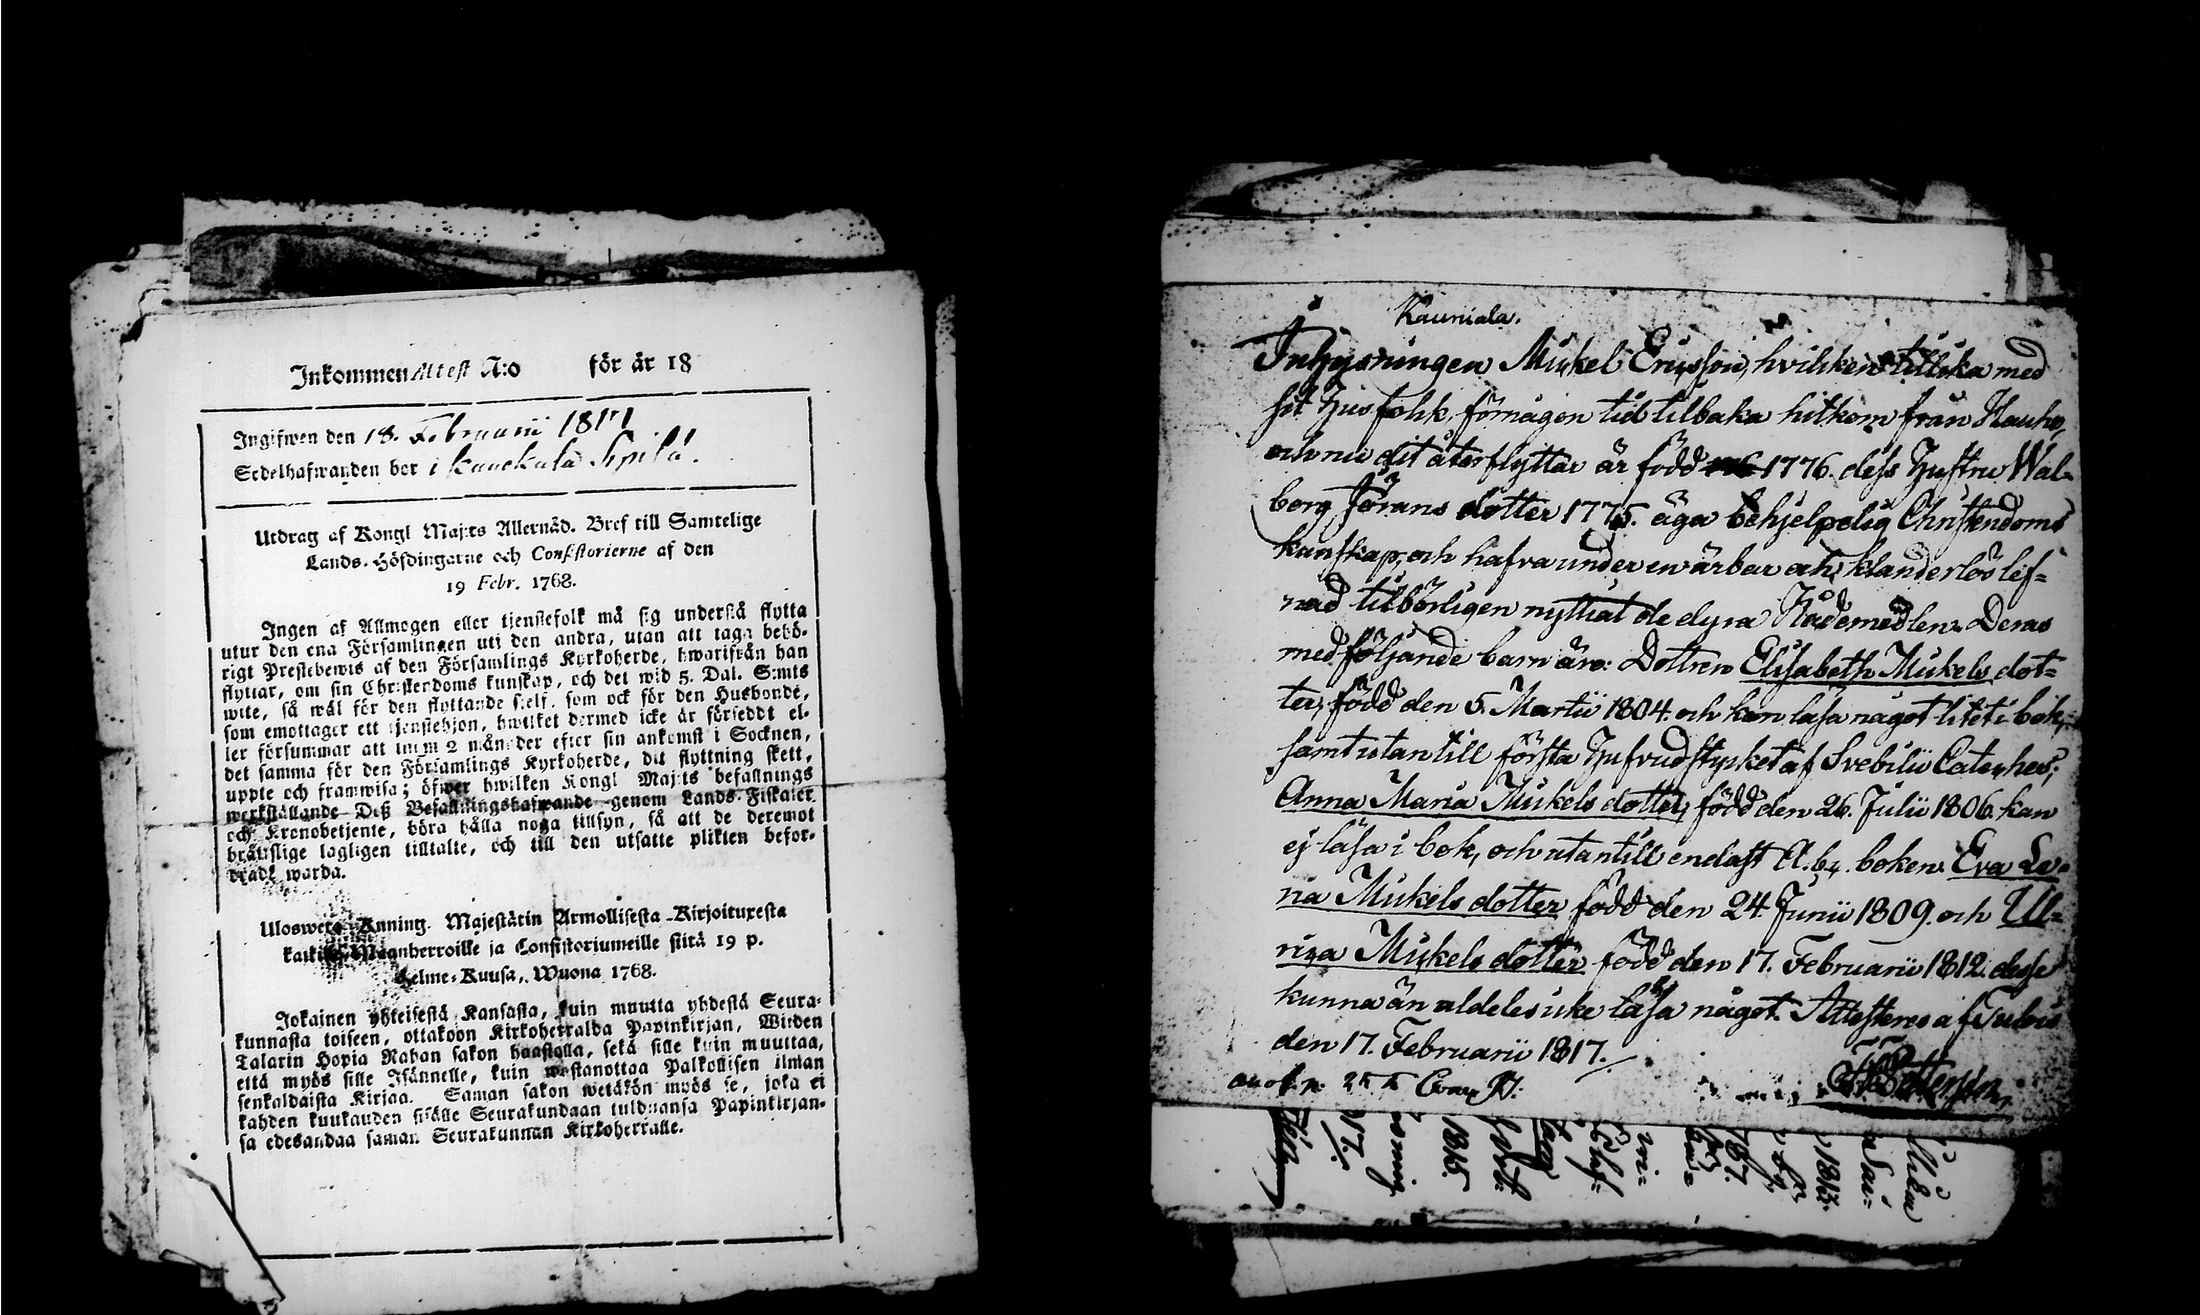 Inkommen Attest N:o för år 18
Ingifwen den 18. Februarii 1817
Sedelhafwanden bor i
Utdrag af Kongl Maj:ts Allernåd. Bref till Samtelige
Lands-Höfdingarne och Consistorierne af den
19 Febr. 1768.
Ingen af Allmogen eller tjenstefolk må sig understå flytta
utur den ena Församlingen uti den andra, utan att taga behö-
rigt Prestebewis af den Församlings Kyrkoherde, hwarifrån han
flyttar, om sin Christendoms kunskap, och det wid 5. Dal. S:mts
wite, så wäl för den flyttande sjelf, som ock för den Husbonde,
som emottager ett tjenstehjon, hwilket dermed icke är försedd el-
ler försummar att inom 2 månader efter sin ankomst i Socknen,
det samma för den Församlings Kyrkoherde, dit flyttning skett,
uppte och framwisa; öfwer hwilken Kongl Maj:ts befallnings
werkställande Deß Befallningshafwande genom Lands-Fiskaler
och Kronobetjente, böra hålla noga tillsyn, så att de deremot
bråttslige lagligen tilltalte, och till den utsatte plikten befor-
drade warda.
Uloswetä Kuning. Majestätin Armollisesta Kirjoituxesta
kaikille Maanherroille ja Consistoriumeille siitä 19 p.
Helme-Kuusa, Wuona 1768.
Jokainen yhteisestä Kansasta, kuin muutta yhdestä Seura-
kunnasta toiseen, ottakoon Kirkoherralda Papinkirjan, Wiiden
Talarin Hopia Rahan sakon haastolla, sekä sille kuin muuttaa,
että myös sille Isännelle, kuin wastanottaa Palkollisen ilman
senkaldaista Kirjaa. Saman sakon wetäkön myös se, joka ei
kahden kuukauden sisälle Seurakundaan tulduansa Papinkirjan-
sa edesandaa saman Seurakunnan Kirkoherralle.
Kauniala.
Inhysningen Mickel Ericsson, hvilken tillika med
sit Husfolk, för någon tid tilbaka hitkom från Hauho,
och nu dit återflyttar är född 1776. dess Hustru Wal-
borg Jörans dotter 1775. äga behjelpelig Christendoms
kunskap, och hafva under en ärbar och klanderlös lef-
nad tilbörligen nyttjat de dyra Nådemedlen. Deras
medföljande barn äro: Dottren Elisabeth Mickels dot-
ter, född den 5. Martii 1804. och kan läsa något litet i bok,
samt utantill första Hufvudstycket af Svebilii Cateches;
Anna Maria Mickels dotter, född den 26. Julii 1806. kan
ej läsa i bok, och utantill endast A.b.c. boken. Eva Le-
na Mickels dotter född den 24. Junii 1809. och Ul-
rica Mickels dotter född den 17. Februarii 1812. desse
kunna än aldeles icke läsa något. Attesteres af Tulois
den 17. Februarii 1817.